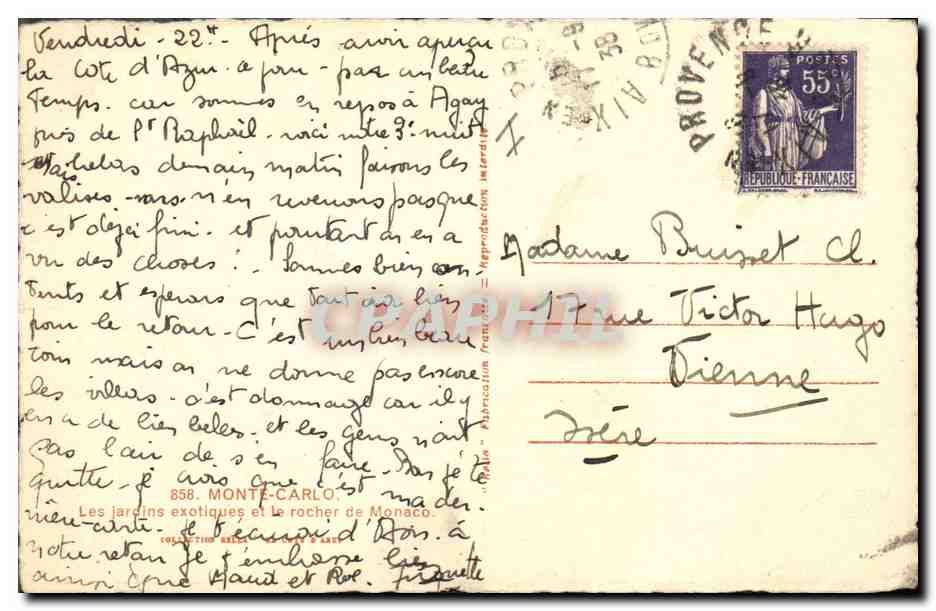 Vendredi - 22h - Après avoir aperçu
la Côte d'Azur - par un beau
temps - car sommes en repos à Agay
près de St Raphaël - voici notre 3e nuit
et hélas demain matin faisons les
valises - mais n'en revenons pas que
c'est déjà fini - et pourtant on en a
vu des choses! - Sommes bien con-
tents et espérons que tout ira bien
pour le retour - C'est un très beau
coin mais on ne donne pas encore
les villas - c'est dommage car il y
en a de bien belles - et les gens n'ont
pas l'air de s'en faire - Bas je te
quitte - je crois que c'est ma der-
nière carte - Je t'écrirai d' à
notre retour Je t'embrasse bien
ainsi que Maud et
858. MONTE-CARLO.
Les jardins exotiques et le rocher de Monaco.
COLLECTION BELLA
"Bella" Fabrication française = Reproduction interdite
AIX
PROVENCE
38
POSTES
55c
REPUBLIQUE·FRANÇAISE
Madame Buisset Cl.
17 rue Victor Hugo
Vienne
Isère
CPAPHIL